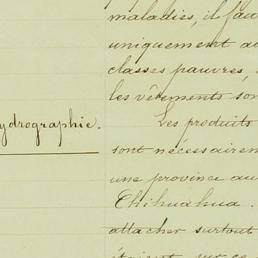 maladies, il fau
uniquement au
classes pauvres,
les vêtements son
ydrographie.
Les produits
sont nécessairem
une province au
Chihuahua.
attacher surtout